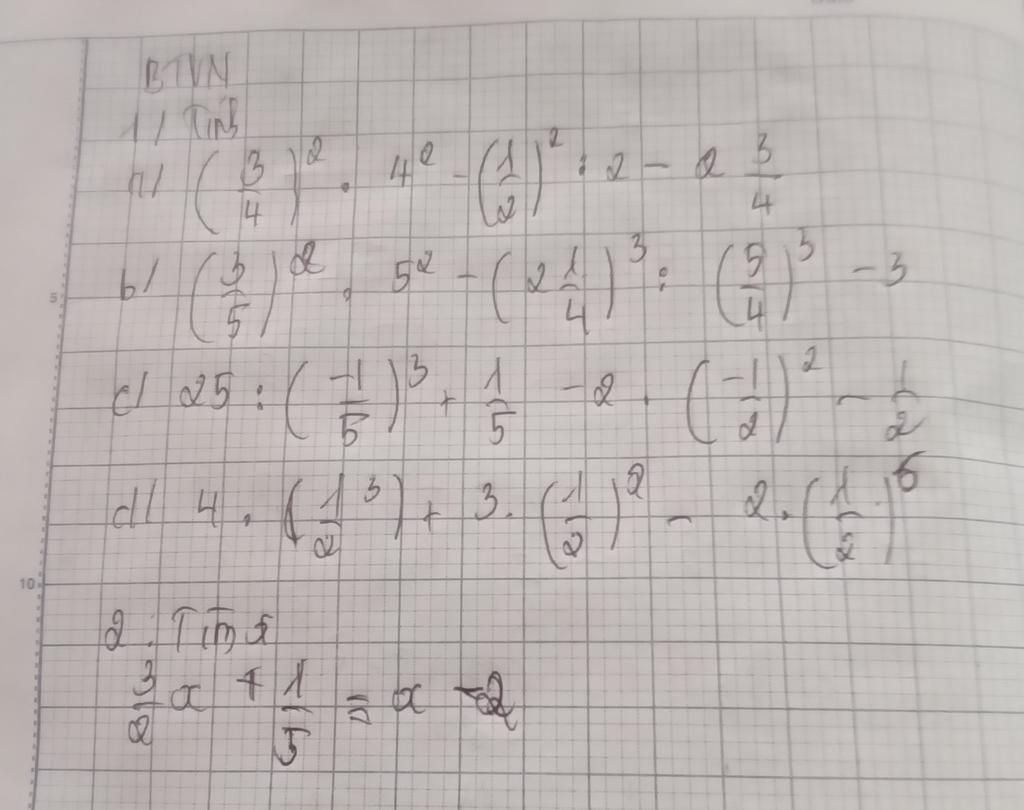 BTVN
1/ Tính
a/ (3/4)² . 4² - (1/2)² : 2 - 2 3/4
b/ (3/5)² . 5² - (2 1/4)³ : (5/4)³ - 3
c/ 25 : (-1/5)³ + 1/5 - 2 . (-1/2)² - 1/2
d/ 4 . (1/2 ³) + 3. (1/2)² - 2 . (1/2)⁶
2. Tìm x
3/2 x + 1/5 = x - 2
5
10